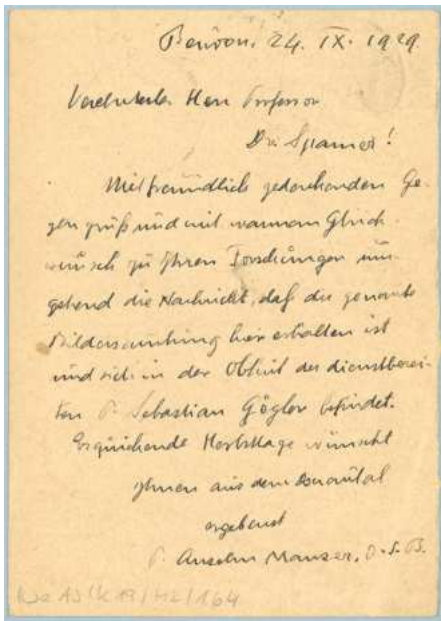 Beuron, 24. IX. 1929.
Verehrtester Herr Professor
Dr. Spamer!
Mit freundlich gedankendem Ge-
gengruß und mit warmem Glück-
wunsch zu Ihren Forschungen um-
gehend die Nachricht, daß die genannte
Bildersammlung hier erhalten ist
und sich in der Obhut des dienstberei-
ten P. Sebastian Gögler befindet.
Erquickende Herbsttage wünscht
Ihnen aus dem Donautal
ergebenst
P. Anselm Manser, O.S.B.
K 19/M2/164